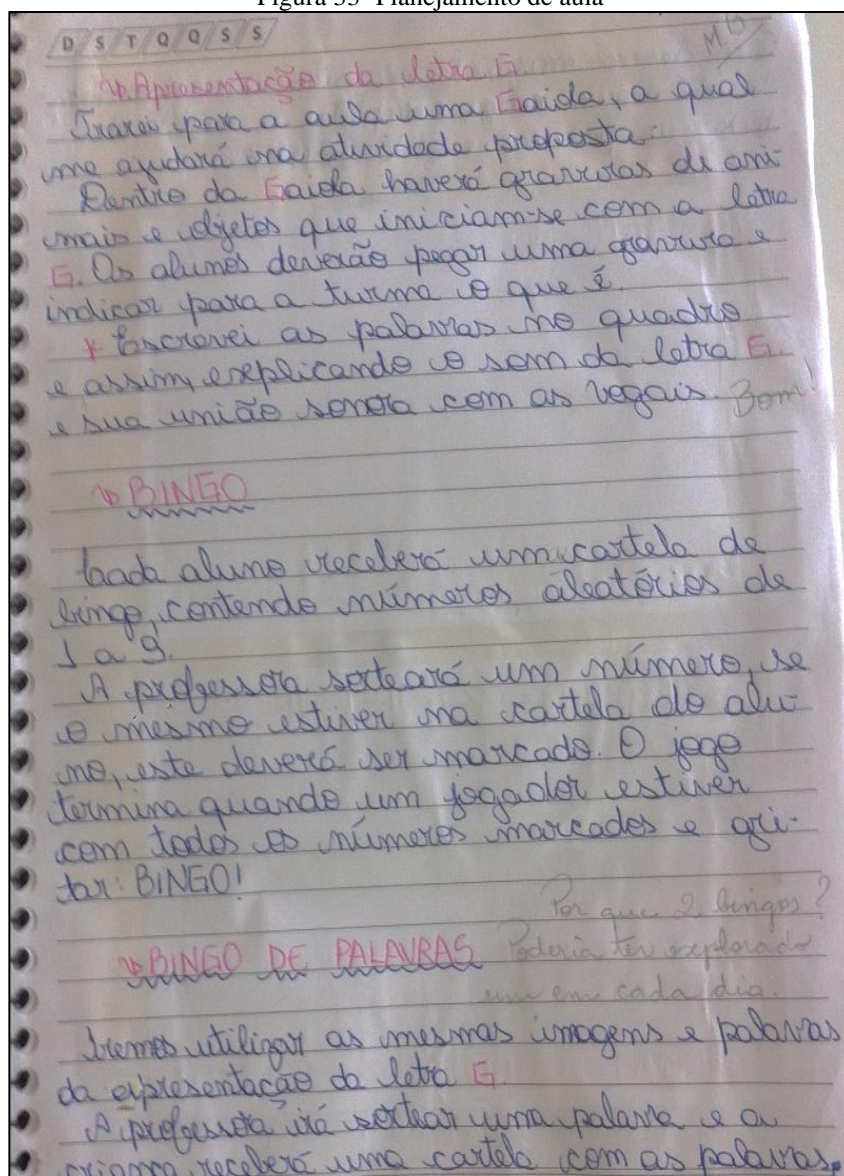 Figura 33- Planejamento de aula
D S T Q Q S S
Apresentação da letra G
Trarei para a aula uma Gaiola, a qual
me ajudará na atividade proposta.
Dentro da Gaiola haverá gravuras de ani-
mais e objetos que iniciam-se com a letra
G. Os alunos deverão pegar uma gravura e
indicar para a turma o que é.
* Escreverei as palavras no quadro
e assim, explicando o som da letra G
e sua união sonora com as vogais. Bom!
BINGO
Cada aluno receberá um cartela de
bingo, contendo números aleatórios de
1 a 9.
A professora sorteará um número, se
o mesmo estiver na cartela do alu-
no, este deverá ser marcado. O jogo
termina quando um jogador estiver
com todos os números marcados e gri-
tar: BINGO!
Por que 2 bingos?
BINGO DE PALAVRAS Poderia ter explorado
um em cada dia.
Iremos utilizar as mesmas imagens e palavras
da apresentação da letra G.
A professora irá sortear uma palavra e a
criança receberá uma cartela com as palavras,